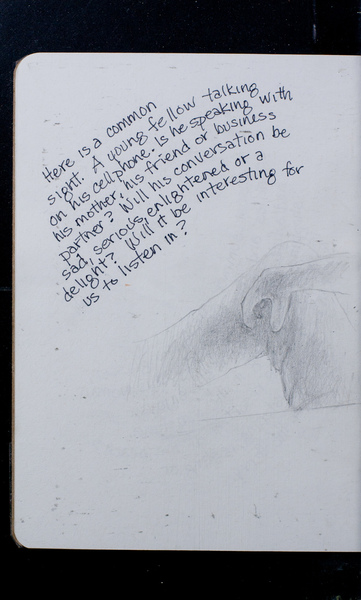 Here is a common
sight. A young fellow talking
on his cellphone. Is he speaking with
his mother, his friend or business
partner? Will his conversation be
sad, serious, enlightened or a
delight? Will it be interesting for
us to listen in?